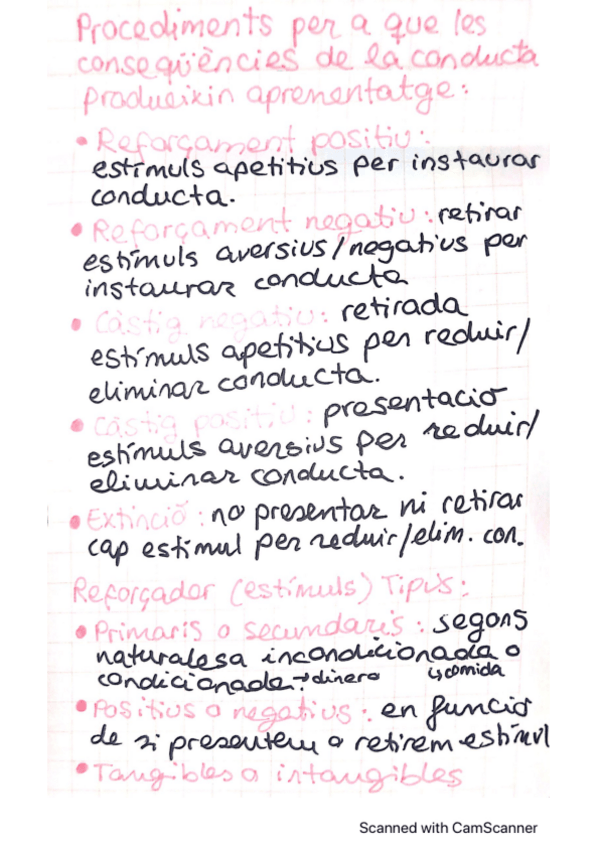 Procediments per a que les
conseqüències de la conducta
produeixin aprenentatge:
• Reforçament positiu:
estímuls apetitius per instaurar
conducta.
• Reforçament negatiu: retirar
estímuls aversius/negatius per
instaurar conducta
• Càstig negatiu: retirada
estímuls apetitius per reduir/
eliminar conducta.
• Càstig positiu: presentació
estímuls aversius per reduir/
eliminar conducta.
• Extinció: no presentar ni retirar
cap estímul per reduir/elim. con.
Reforçador (estímuls) Tipus:
• Primaris o secundaris: segons
naturalesa incondicionada o
condicionada → dinero ↳ comida
• Positius o negatius: en funció
de si presentem o retirem estímul
• Tangibles o intangibles
Scanned with CamScanner